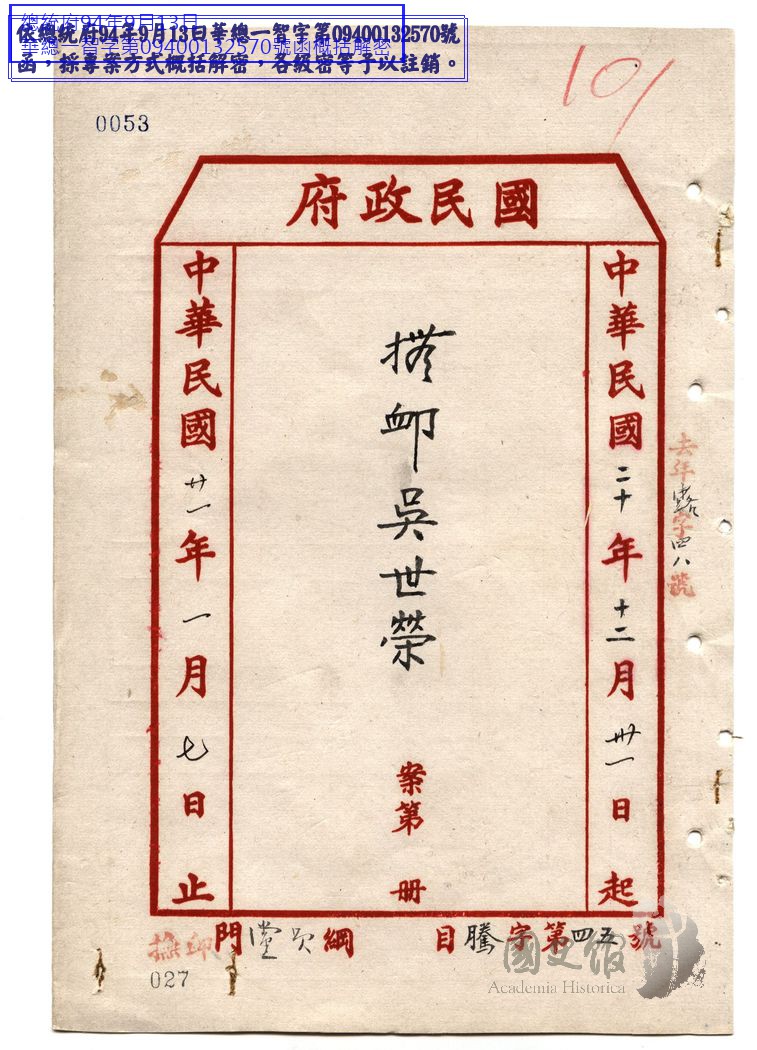 總統府94年9月13日
華總一智字第09400132570號函概括解密
依總統府94年9月13日華總一智字第09400132570號
函，採專案方式概括解密，各級密等予以註銷。
101
0053
國民政府
中華民國二十年十二月卅一日起
去年 字四八號
撫卹吳世榮
案第 册
中華民國廿一年一月七日止
撫卹門黨員綱 目騰字第四五號
027
國史館
Academia Historica